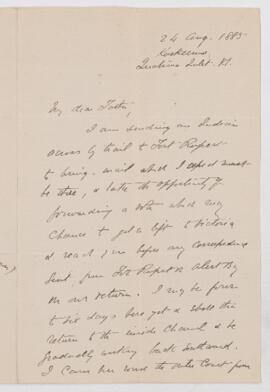 24 Aug. 1885
Koskeemo,
Quatsino Inlet. V.I.
My dear Father,
I am sending an Indian
across by trail to Fort Rupert
to bring mail which I expect must
be there, & take the opportunity of
forwarding a note which may
chance to get a lift to Victoria
& reach you before any correspondence
sent from Fort Rupert or Alert Bay
on our return. I may be four
to six days here yet & shall then
return to the inside Channel & be
gradually working back Southward.
I came here round the outer Coast from